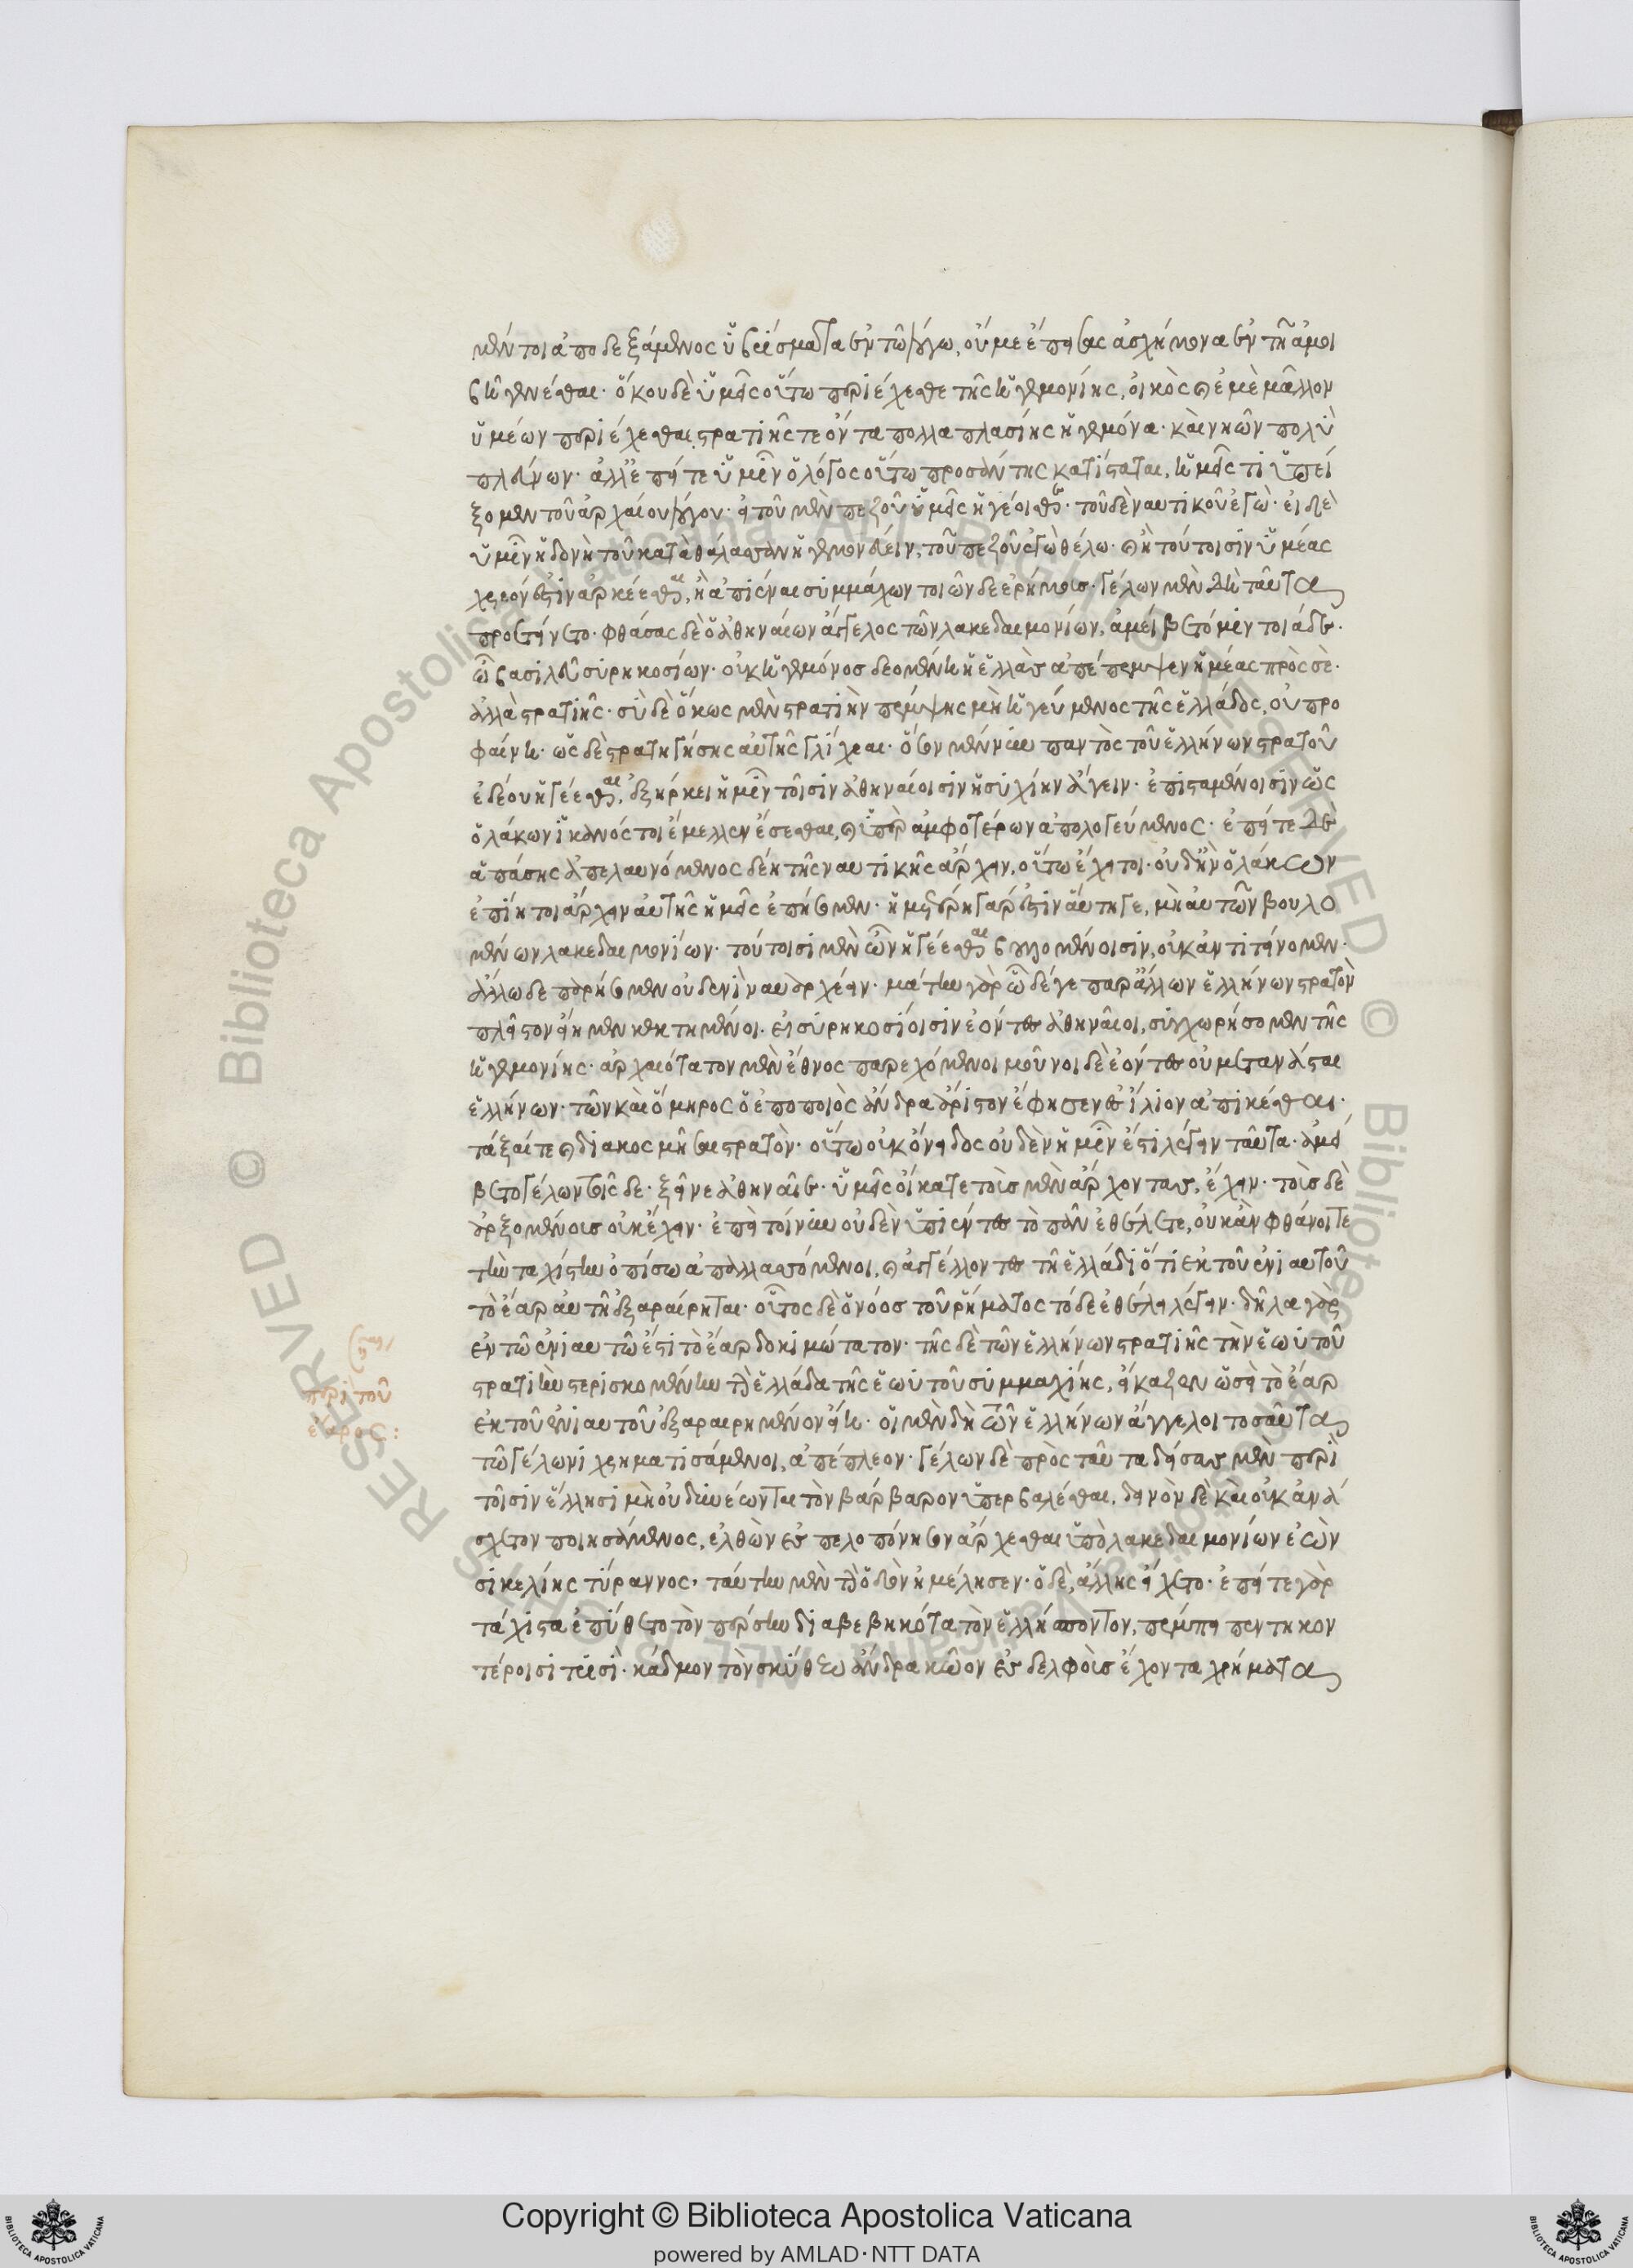 μέντοι ἀποδεξάμενος ὑβρίσματα ἐν τῶ λόγω, οὔ με ἔπεισας ἀσχήμονα ἐν τῆ ἀμοι
βῆ γενέσθαι· ὅκου δὲ ὑμεῖς οὕτω περιέχεσθε τῆς ἡγεμονίης, οἰκὸς καὶ ἐμὲ μᾶλλον
ὑμέων περιέχεσθαι, στρατιῆς τε ἐόντα πολλαπλασίης ἡγεμόνα· καὶ νηῶν πολὺ
πλεύνων· ἀλλ' ἐπείτε ὑμῖν ὁ λόγος οὕτω προσάντης κατίσταται, ἡμεῖς τι ὑπεί
ξομεν τοῦ ἀρχαίου λόγου· εἰ τοῦ μὲν πεζοῦ ὑμεῖς ἡγέοισθε· τοῦ δὲ ναυτικοῦ ἐγώ· εἰ δὲ
ὑμῖν ἡδονὴ τοῦ κατὰ θάλασσαν ἡγεμονεύειν, τοῦ πεζοῦ ἐγὼ θέλω· καὶ ἢ τούτοισιν ὑμέας
χρεόν ἐστιν ἀρκέεσθαι, ἢ ἀπιέναι συμμάχων τοιῶνδε ἐρήμους· Γέλων μὲν δὴ ταῦτα
προετείνετο· φθάσας δὲ ὁ ἀθηναίων ἄγγελος τῶν λακεδαιμονίων, ἀμείβετό μιν τοιάδε·
ὦ βασιλεῦ συρηκοσίων· οὐκ ἡγεμόνος δεομένη ἡ ἑλλὰς ἀπέπεμψεν ἡμέας πρὸς σὲ·
ἀλλὰ στρατιῆς· σὺ δὲ ὅκως μὲν στρατιὴν πέμψης μὴ ἡγεύμενος τῆς ἑλλάδος, οὐ προ
φαίνη· ὡς δὲ στρατηγήσης αὐτῆς γλίχεαι· ὅσον μέν νυν παντὸς τοῦ ἑλλήνων στρατοῦ
ἐδέου ἡγέεσθαι, ἐξήρκει ἡμῖν τοῖσιν ἀθηναίοισιν ἡσυχίην ἄγειν· ἐπισταμένοισιν ὡς
ὁ λάκων ἱκανός τοι ἔμελλεν ἔσεσθαι, καὶ ὑπὲρ ἀμφοτέρων ἀπολογεύμενος· ἐπείτε δὲ
ἁπάσης ἀπελαυνόμενος δέη τῆς ναυτικῆς ἄρχειν, οὕτω ἔχει τοι· οὐδ' ἢν ὁ λάκων
ἐπίη τοι ἄρχειν αὐτῆς ἡμεῖς ἐπήσομεν· ἡμετέρη γάρ ἐστιν αὕτη γε, μὴ αὐτῶν βουλο
μένων λακεδαιμονίων· τούτοισι μὲν ὦν ἡγέεσθαι βουλομένοισιν, οὐκ ἀντιτείνομεν·
ἄλλω δὲ παρήσομεν οὐδενὶ ναυαρχέειν· μάτην γὰρ ὧδέ γε παρ' ἄλλων ἑλλήνων στρατὸν
πλεῖστον εἴημεν κεκτημένοι. εἰ συρηκοσίοισιν ἐόντες ἀθηναῖοι, συγχωρήσομεν τῆς
ἡγεμονίης· ἀρχαιότατον μὲν ἔθνος παρεχόμενοι μοῦνοι δὲ ἐόντες οὐ μετανάσται
ἑλλήνων· τῶν καὶ ὅμηρος ὁ ἐποποιὸς ἄνδρα ἄριστον ἔφησεν ἐς ἴλιον ἀπικέσθαι·
τάξαί τε καὶ διακοσμῆσαι στρατὸν· οὕτω οὐκ ὄνειδος οὐδὲν ἡμῖν ἐστι λέγειν ταῦτα· ἀμεί
βετο γέλων τοῖς δε· ξεῖνε ἀθηναῖε· ὑμεῖς οἴκατε τοὺς μὲν ἄρχοντας, ἔχειν· τοὺς δὲ
ἀρξομένους οὐκ ἔχειν· ἐπεὶ τοίνυν οὐδὲν ὑπιέντες τὸ πᾶν ἐθέλετε, οὐκ ἂν φθάνοιτε
τὴν ταχίστην ὀπίσω ἀπαλλασσόμενοι, καὶ ἀγγέλλοντες τῆ ἑλλάδι ὅτι ἐκ τοῦ ἐνιαυτοῦ
τὸ ἔαρ αὐτῆ ἐξαραίρηται· οὗτος δὲ ὁ νόος τοῦ ῥήματος τόδε ἐθέλει λέγειν· δῆλα γὰρ
ἐν τῶ ἐνιαυτῶ ἐστὶ τὸ ἔαρ δοκιμώτατον· τῆς δὲ τῶν ἑλλήνων στρατιῆς τὴν ἑωυτοῦ
στρατιὴν στερισκομένην τὴν ἑλλάδα τῆς ἑωυτοῦ συμμαχίης, εἴκαζεν ὡς εἰ τὸ ἔαρ
ἐκ τοῦ ἐνιαυτοῦ ἐξαραιρημένον εἴη· οἱ μὲν δὴ τῶν ἑλλήνων ἄγγελοι τοσαῦτα
τῶ γέλωνι χρηματισάμενοι, ἀπέπλεον· γέλων δὲ πρὸς ταῦτα δείσας μὲν περὶ
τοῖσιν ἕλλησι μὴ οὐ δυνέωνται τὸν βάρβαρον ὑπερβαλέσθαι, δεινὸν δὲ καὶ οὐκ ἀνά
σχετον ποιησάμενος, ἐλθὼν ἐς πελοπόννησον ἄρχεσθαι ὑπὸ λακεδαιμονίων ἐὼν
σικελίης τύραννος· ταύτην μὲν τὴν ὁδὸν ἠμέλησεν· ὁ δὲ, ἄλλης εἴχετο· ἐπείτε γὰρ
τάχιστα ἐπύθετο τὸν πέρσην διαβεβηκότα τὸν ἑλλήσποντον, πέμπει πεντηκον
τέροισι τρισὶ· κάδμον τὸν σκύθεω ἄνδρα κῶον ἐς δελφοὺς ἔχοντα χρήματα
περὶ τοῦ
ἔαρος: